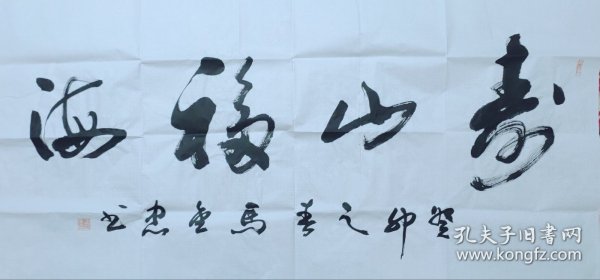 寿山福海
癸卯之春馬金忠书
孔夫子旧书网
www.kongfz.com